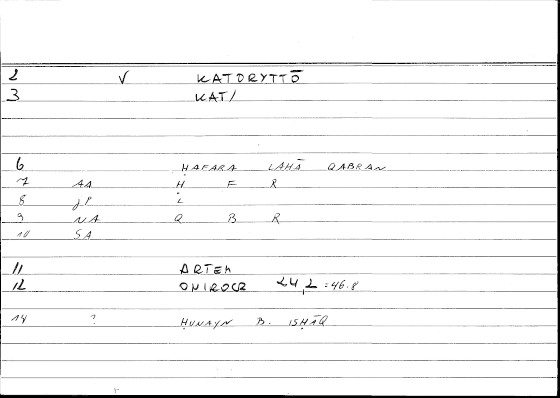 2 √ KATORYTTŌ
3 KAT/
6 ḤAFARA LAHĀ QABRAN
7 AA Ḥ F R
8 JP L
9 NA Q B R
10 SA
11 ARTEM
12 ONIROCR 24,2 : 46.8
14 ? ḤUNAYN B. ISḤĀQ